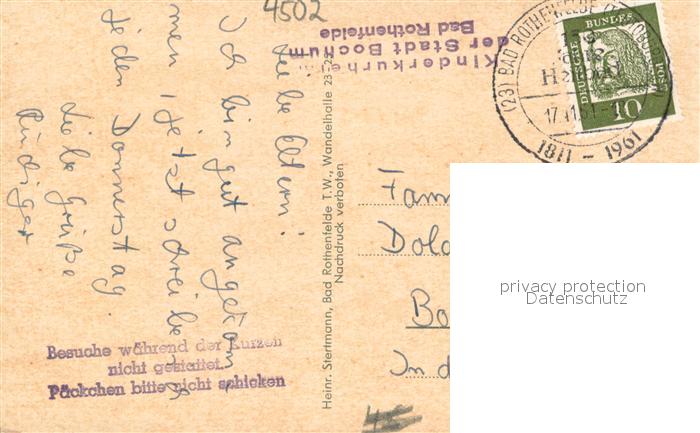 4502
Kinderkurhei
der Stadt Bochum
Bad Rothenfelde
(23) BAD ROTHENFELDE
17.11.61
1811 - 1961
DEUTSCHE BUNDESPOST
10
Liebe Eltern!
Ich bin gut angekom-
men, jetzt schreibe ich
jeden Donnerstag.
Liebe Grüße
Rüdiger
Heinr. Stertmann, Bad Rothenfelde T.W., Wandelhalle 23-25
Nachdruck verboten
Fam
Dold
Bo
In d
Besuche während der Kurzeit
nicht gestattet.
Päckchen bitte nicht schicken
privacy protection
Datenschutz